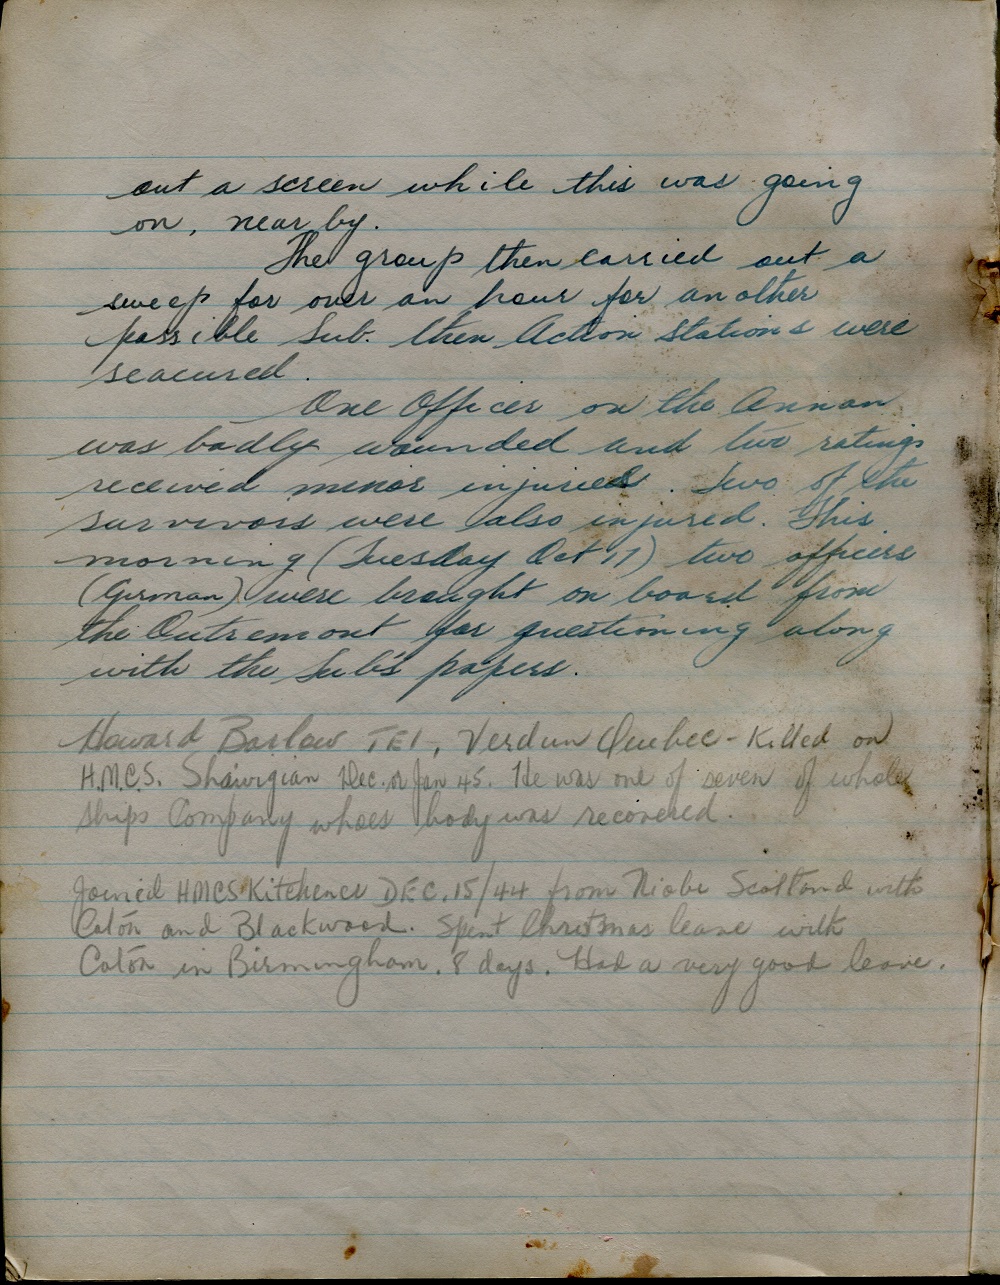 out a screen while this was going
on, near by.
The group then carried out a
sweep for over an hour for another
possible Sub. then Action Stations were
seacured.
One Officer on the Annan
was badly wounded and two ratings
received minor injuries. Two of the
survivors were also injured. This
morning (Tuesday Oct 17) two officers
(German) were brought on board from
the Outremont for questioning along
with the Sub's papers.
Howard Barlow TEI, Verdun Quebec - Killed on
H.M.C.S. Shawigian Dec. or Jan 45. He was one of seven of whole
ships Company whoes body was recovered.
Joined HMCS Kitchener DEC. 15/44 from Niobe Scotland with
Caton and Blackwood. Spent Christmas leave with
Caton in Birmingham. 8 days. Had a very good leave.